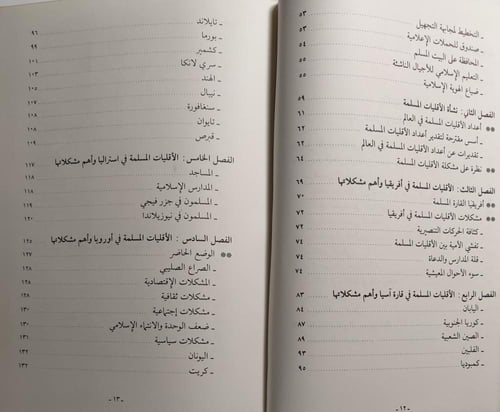 - التخطيط لمجابهة التجهيل ٥٣
- صندوق للحملات الإعلامية
- المحافظة على البيت المسلم ٥٤
- التعليم الإسلامي للأجيال الناشئة ٥٤
- ضياع الهوية الإسلامية ٥٥
الفصل الثاني: نشأة الأقليات المسلمة ٥٩
** أعداد الأقليات المسلمة في العالم ٦١
- أسس مقترحة لتقدير أعداد الأقليات المسلمة ٦١
- تقديرات عن أعداد الأقليات المسلمة في العالم ٦٢
** نظرة على مشكلة الأقليات المسلمة ٦٤
الفصل الثالث: الأقليات المسلمة في أفريقيا وأهم مشكلاتها ٦٩
** أفريقيا القارة المسلمة ٧٠
** مشكلات الأقليات المسلمة في أفريقيا ٧٢
- كثافة الحركات التنصيرية ٧٢
- تفشي الأمية بين الأقليات المسلمة ٧٤
- قلة المدارس والدعاة ٧٤
- سوء الأحوال المعيشية ٧٤
الفصل الرابع: الأقليات المسلمة في قارة آسيا وأهم مشكلاتها ٨٣
- اليابان ٨٥
- كوريا الجنوبية ٨٧
- الصين الشعبية ٨٩
- الفلبين ٩٣
- كمبوديا ٩٥
- ١٢ -
- تايلاند ٩٦
- بورما
- كشمير ٩٩
- سري لانكا ١٠١
- الهند ١٠٣
- نيبال
- سنغافورة
- تايوان ١٠٩
- قبرص ١٠٩
الفصل الخامس: الأقليات المسلمة في استراليا وأهم مشكلاتها ١١٧
- المساجد ١١٨
- المدارس الإسلامية ١١٨
- المسلمون في جزر فيجي ١١٩
- المسلمون في نيوزيلاندا ١٢٠
الفصل السادس: الأقليات المسلمة في أوروبا وأهم مشكلاتها ١٢٥
** الوضع الحاضر ١٢٧
- الصراع الصليبي
- المشكلات الإقتصادية
- مشكلات ثقافية
- مشكلات إجتماعية
- ضعف الوحدة والانتماء الإسلامي
- مشكلات سياسية ١٣١
- اليونان ١٣٢
- كريت ١٣٢
- ١٣ -